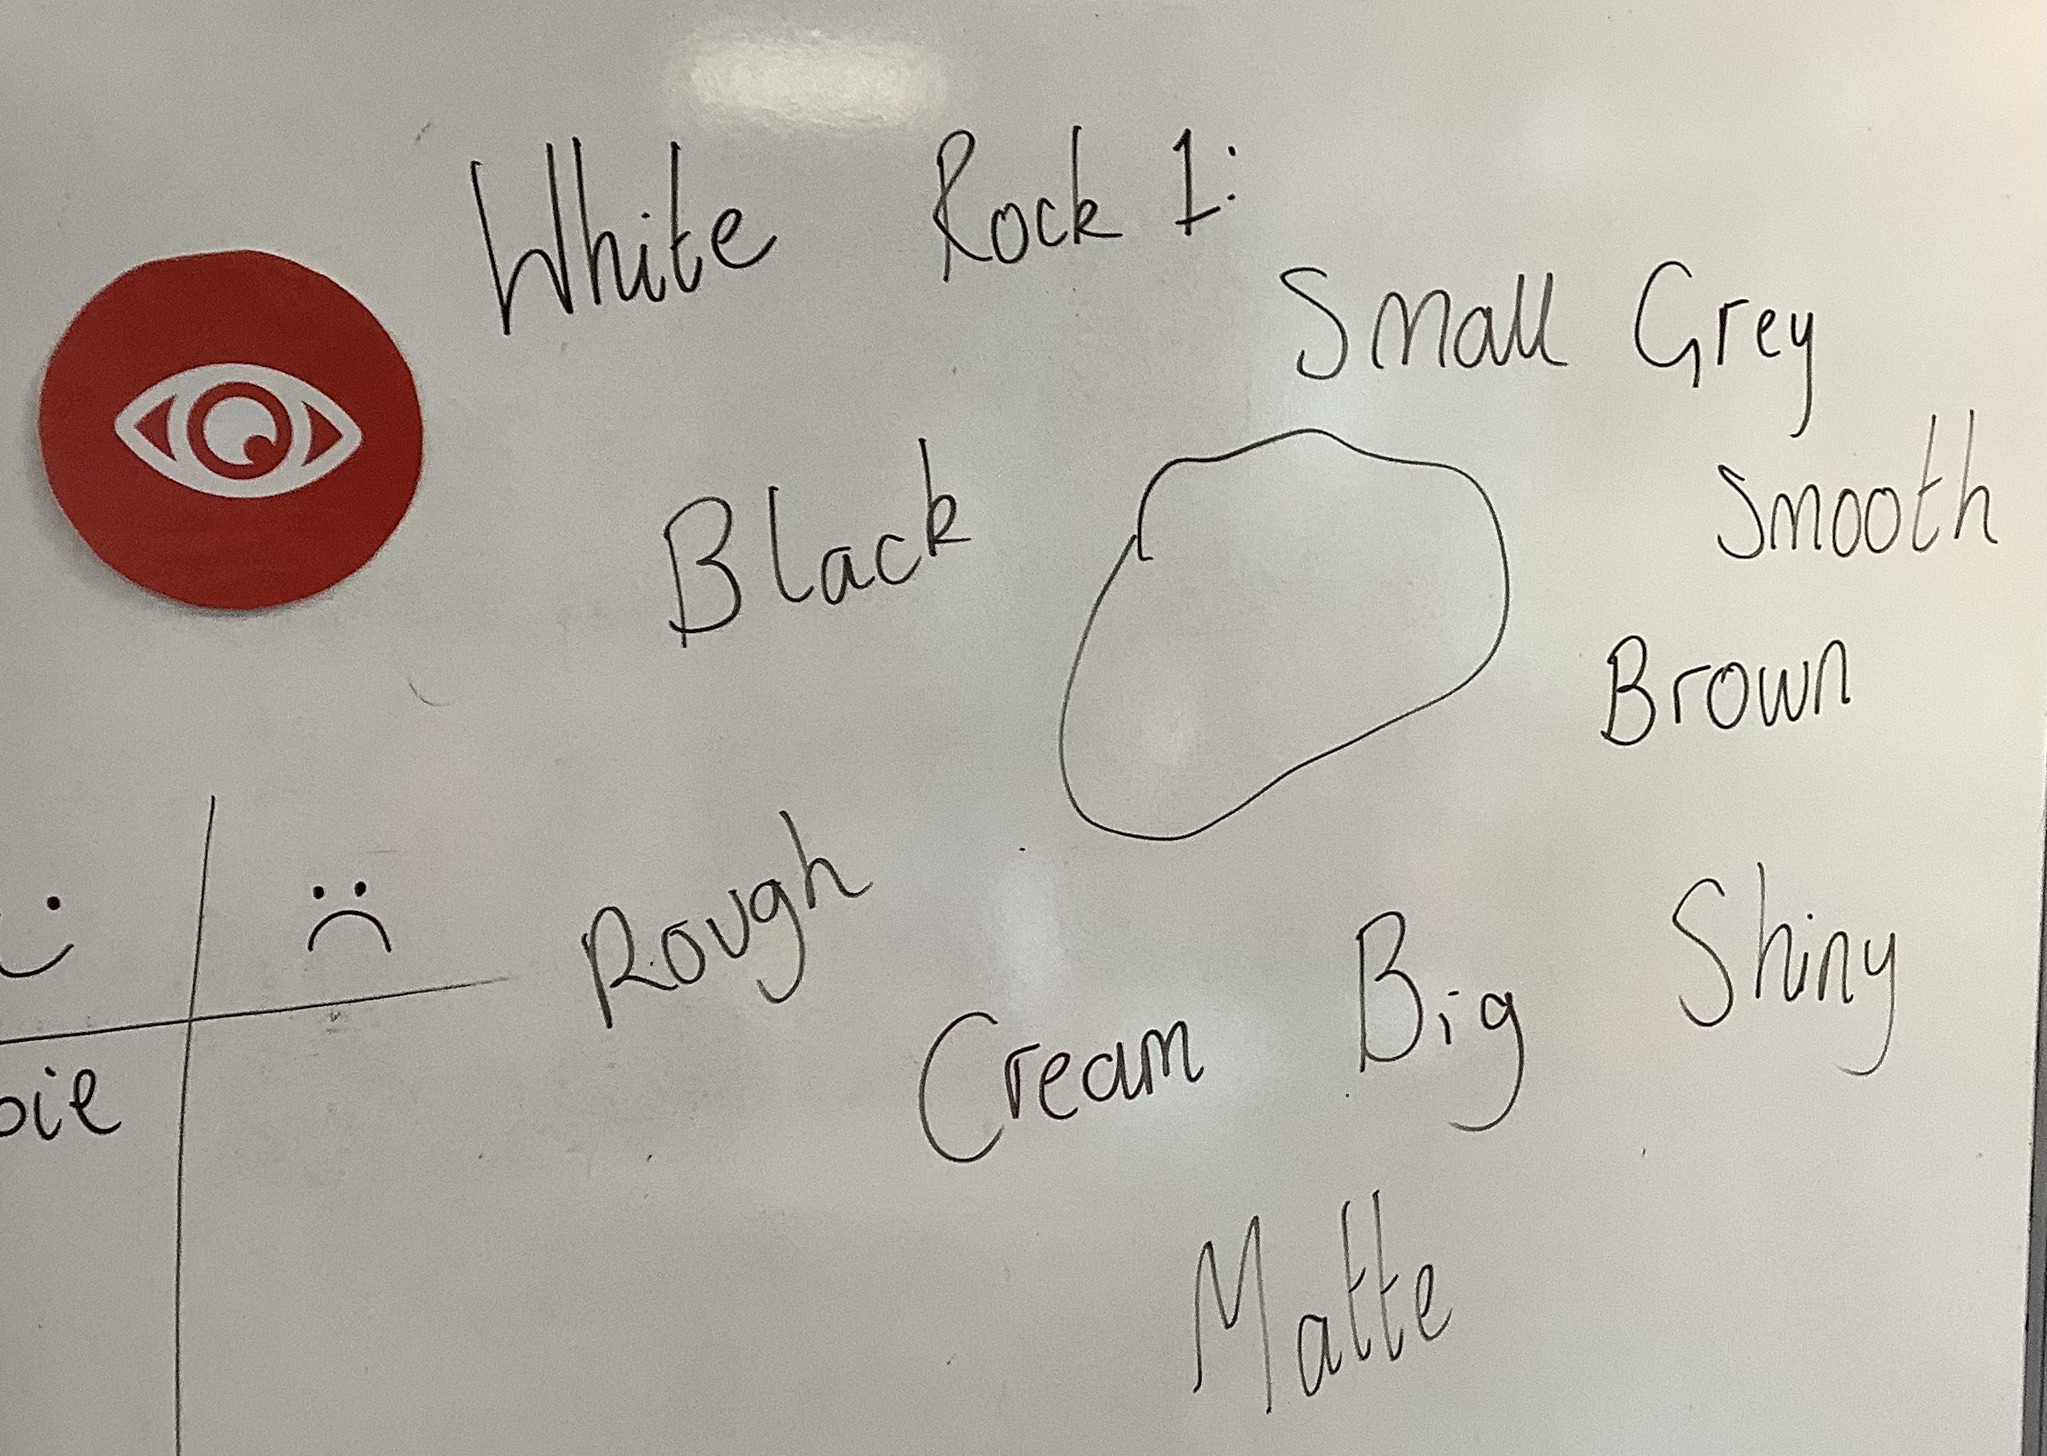 White Rock 1:
Small Grey
Black
Smooth
Brown
Rough
Cream Big Shiny
Matte